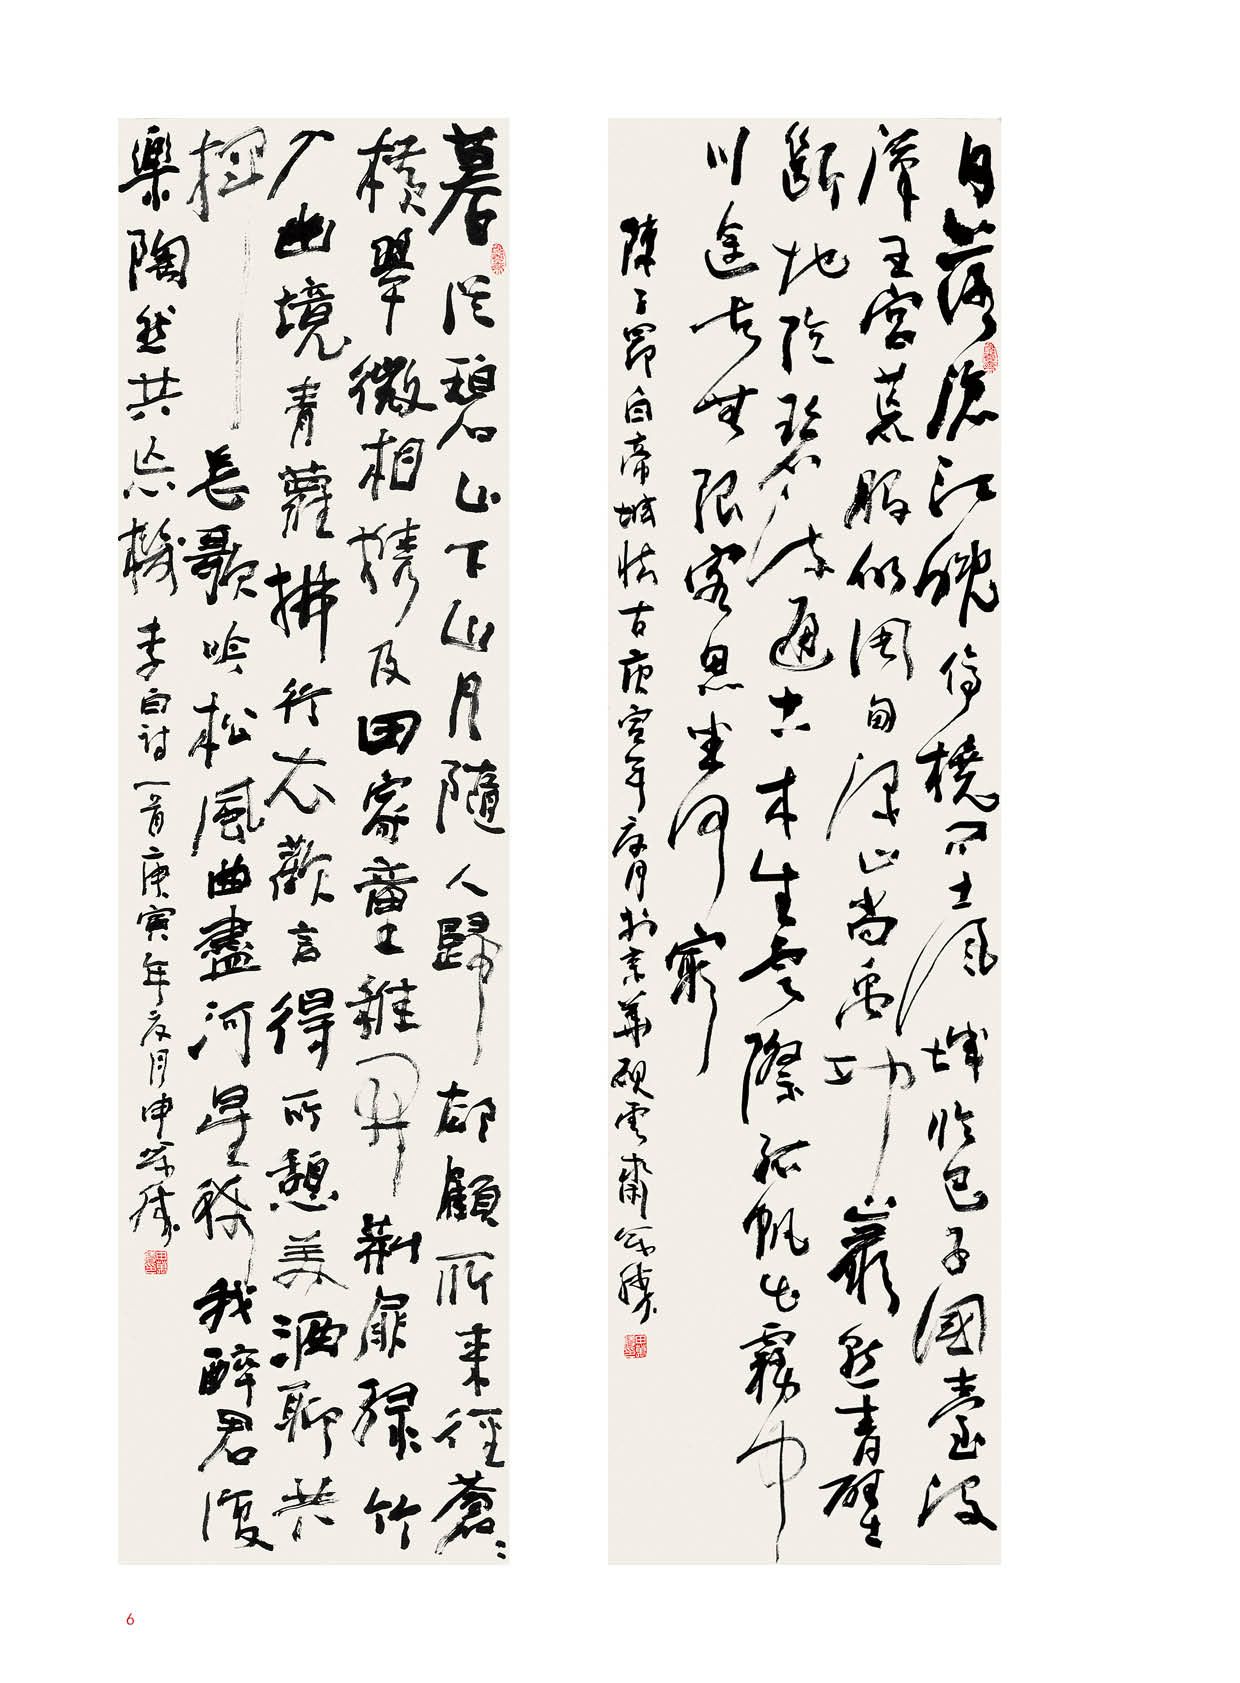 日落滄江晚停橈問土風城臨巴子國臺沒
漢王宮荒服仍周甸深山尚禹功巖懸青壁
斷地險碧流通古木生雲際孤帆出霧中
川途去無限客思坐何窮
陳子昂白帝城懷古庚寅年夏月於京華硯雲齋萬勝
暮從碧山下山月隨人歸卻顧所來徑蒼〻
橫翠微相攜及田家童稚開荊扉綠竹
入幽境青蘿拂行衣歡言得所憩美酒聊共
揮長歌吟松風曲盡河星稀我醉君復
樂陶然共忘機李白詩一首庚寅年夏月申萬勝
6